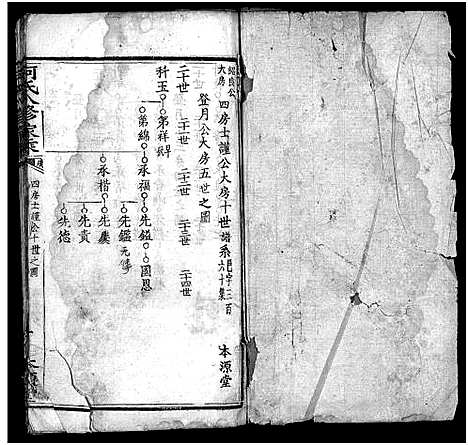 紹良公大房 四房士謹公大房十世譜系 巳字二百六十集 本源堂
登月公大房五世之圖
二十世 二十一世 二十二世 二十三世 二十四世
科玉 第祥
第綿 承福 先鎰 國恩
先鑑
承楷 先廣
先貴
先德
何氏八修家乘
四房士謹公十世之圖